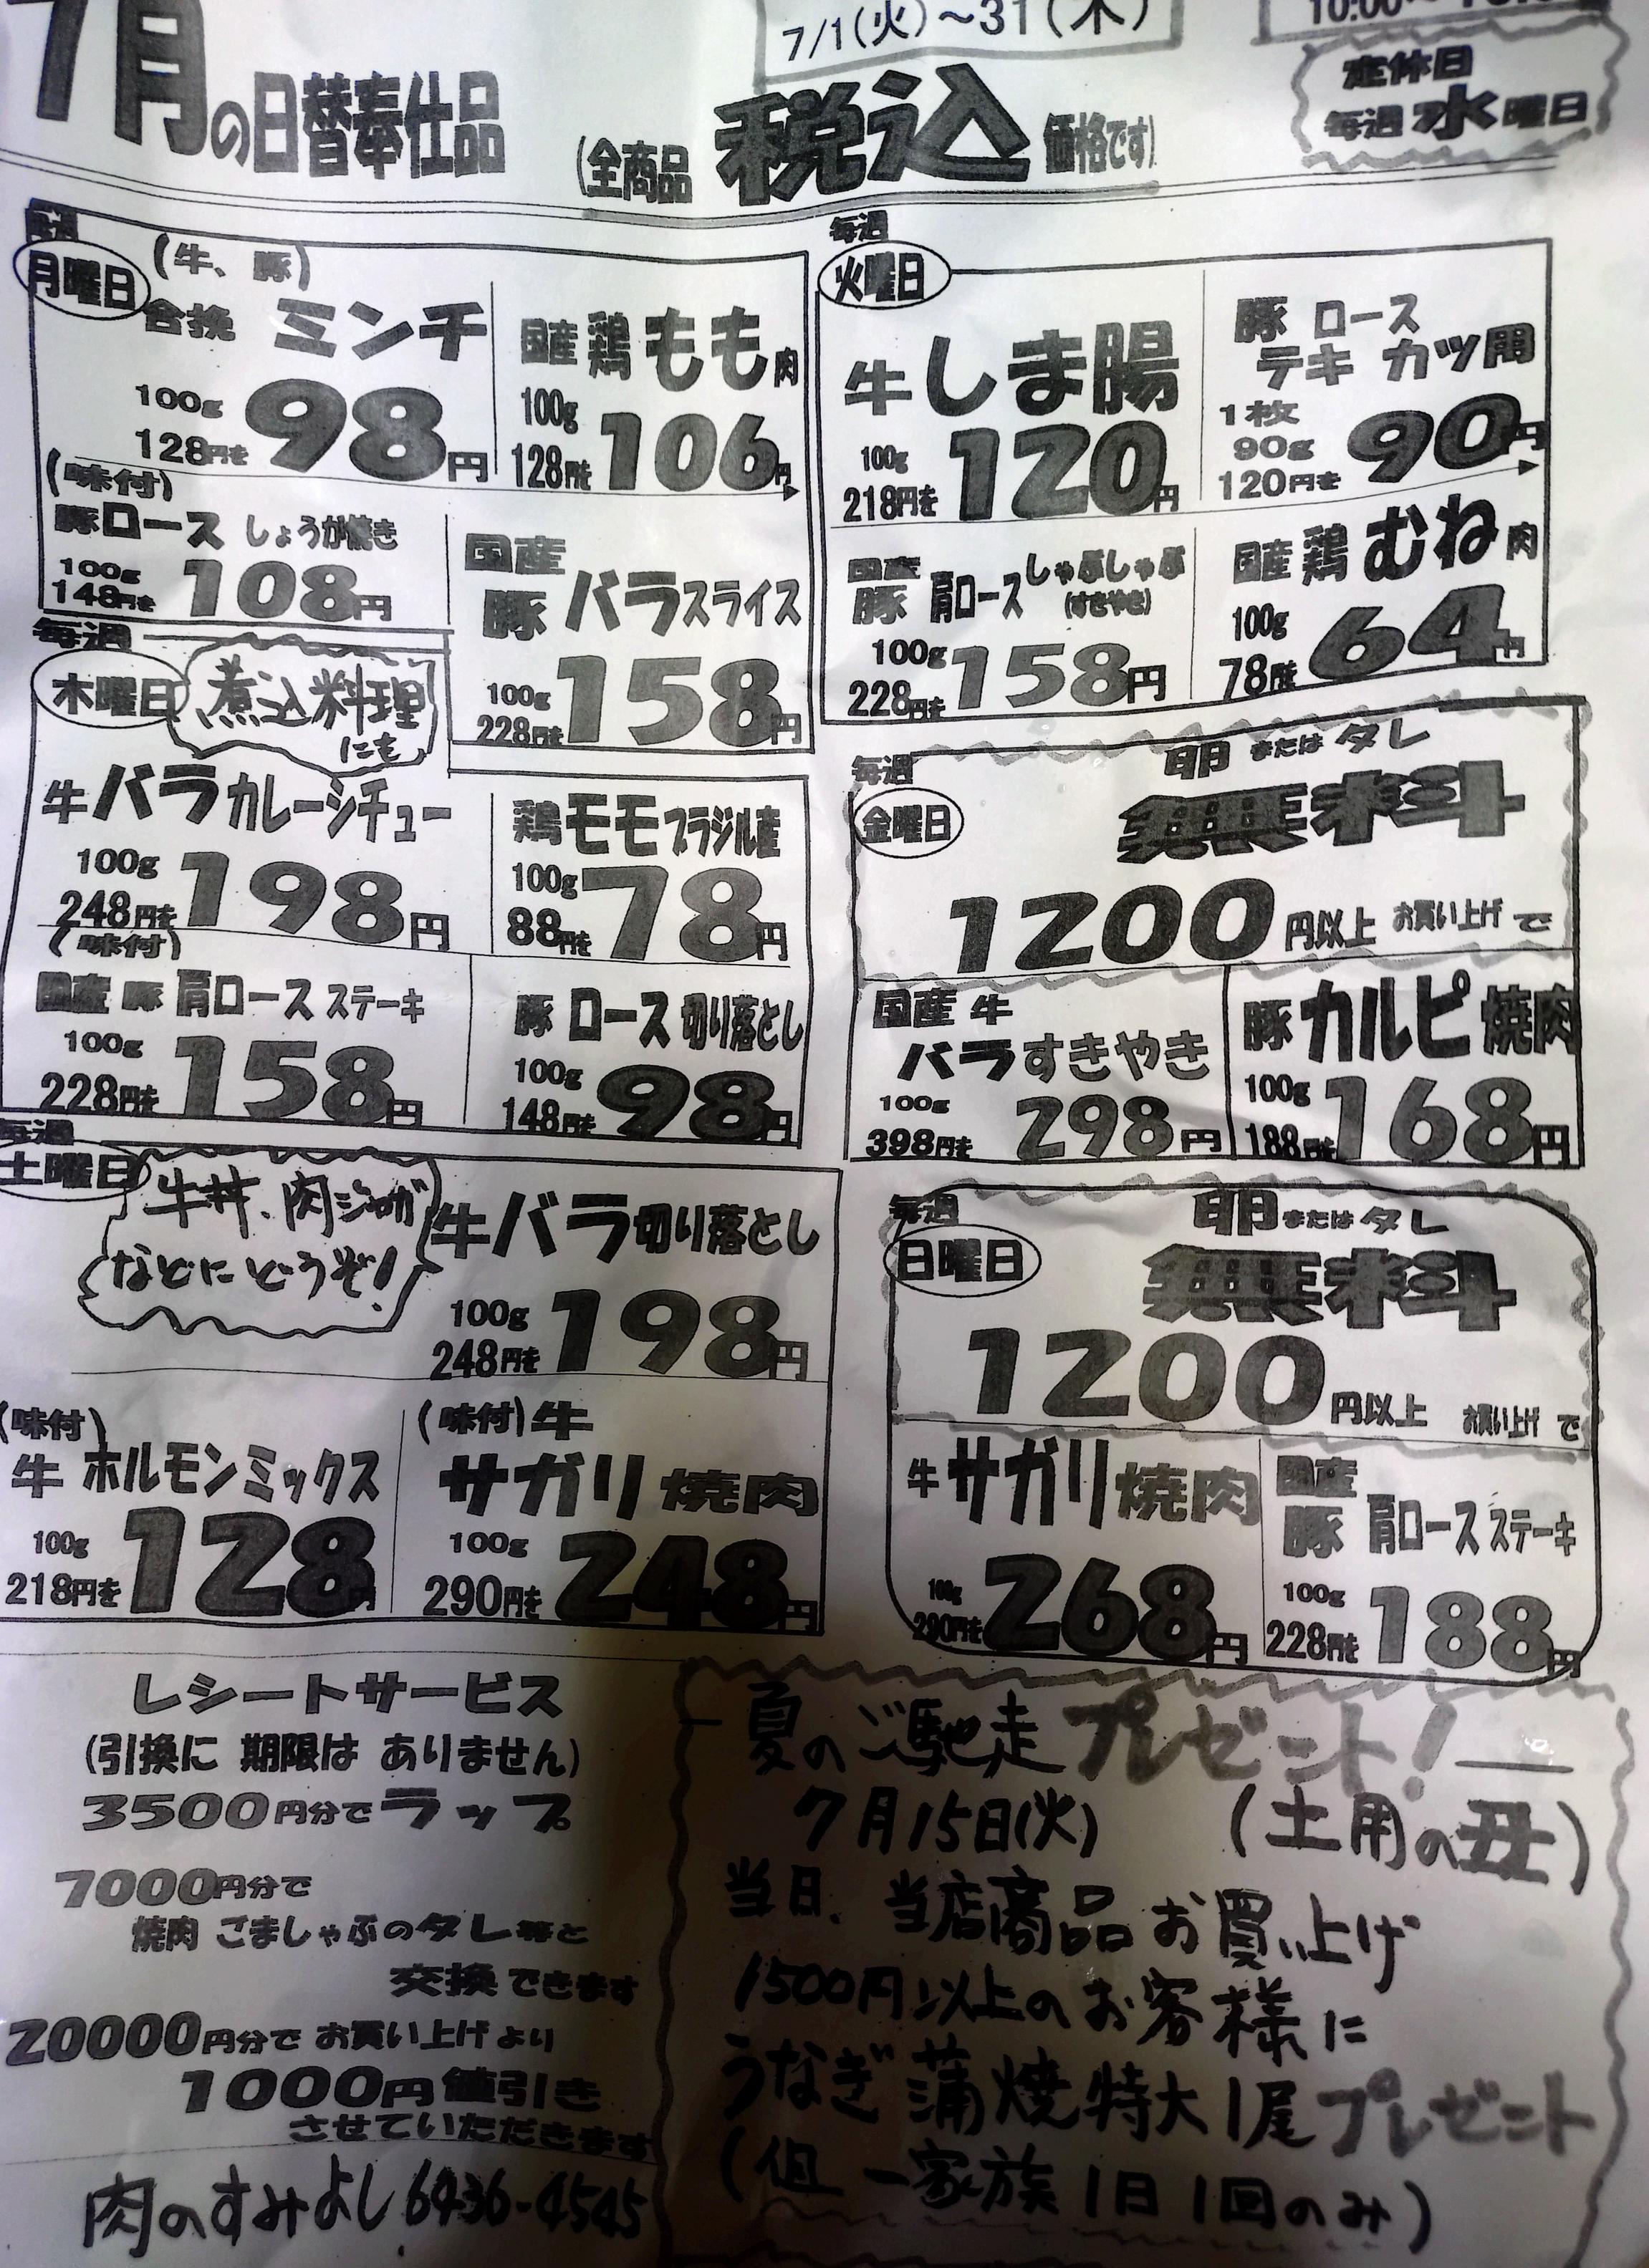 7月の日替奉仕品
7/1(火)～31(木)
(全商品 税込 価格です)
定休日
毎週水曜日
毎週
月曜日
(牛、豚)
合挽 ミンチ
100g
128円を 98円
国産 鶏 もも肉
100g
128円を 106円
(味付)
豚ロース しょうが焼き
100g
148円を 108円
国産
豚 バラスライス
100g
228円を 158円
毎週
火曜日
牛しま腸
100g
218円を 120円
豚 ロース
テキ カツ用
1枚
90g
120円を 90円
国産
豚 肩ロース しゃぶしゃぶ
(すきやき)
100g
228円を 158円
国産 鶏 むね肉
100g
78円を 64円
毎週
木曜日
煮込料理
にも
牛バラカレーシチュー
100g
248円を 198円
鶏モモブラジル産
100g
88円を 78円
(味付)
国産 豚 肩ロース ステーキ
100g
228円を 158円
豚 ロース 切り落とし
100g
148円を 98円
毎週
金曜日
卵 または タレ
無料
1200円以上 お買い上げ で
国産 牛
バラすきやき
100g
398円を 298円
豚カルビ焼肉
100g
188円を 168円
毎週
土曜日
牛丼、肉ジャガ
などにどうぞ!
牛バラ切り落とし
100g
248円を 198円
(味付)
牛 ホルモンミックス
100g
218円を 128円
(味付)牛
サガリ 焼肉
100g
290円を 248円
毎週
日曜日
卵 または タレ
無料
1200円以上 お買い上げ で
牛サガリ焼肉
100g
290円を 268円
国産
豚 肩ロース ステーキ
100g
228円を 188円
レシートサービス
(引換に 期限は ありません)
3500円分で ラップ
7000円分で
焼肉 ごましゃぶのタレ等と
交換できます
20000円分で お買い上げより
1000円値引き
させていただきます
肉のすみよし 6436-4545
夏のご馳走プレゼント!
7月15日(火) (土用の丑)
当日、当店商品お買い上げ
1500円以上のお客様に
うなぎ蒲焼特大1尾プレゼント
(但 一家族1日1回のみ)